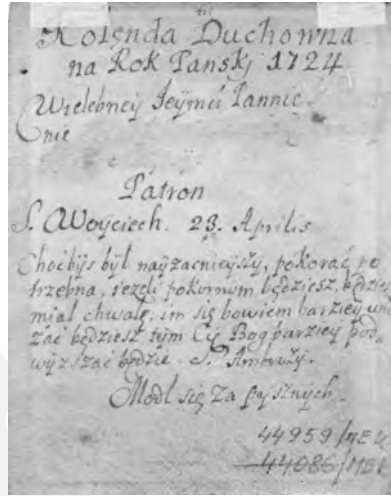 Kolenda Duchowna
na Rok Panskj 1724
Wielebney Jeymć Pannie
Patron
S. Woyciech. 23. Aprilis
Choćbyś był nayzacnieyszy, pokorać po
trzebna, ieżeli pokornym będziesz, będziesz
miał chwałę, im się bowiem barziey uni
żać będziesz tym Cię Bog barziey pod
wyzszać będzie. S. Ambroży.
Modl się za pysznych.
44959/ME
44086/ME